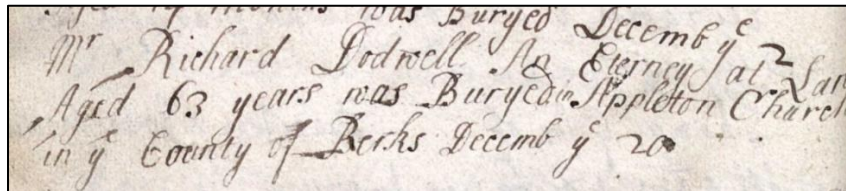 Aged 14 months was Buryed Decemb yᵉ
Mʳ Richard Dodwell An Eterney at Law
Aged 63 years was Buryed in Appleton Church
in yᵉ County of Berks Decemb yᵉ 20